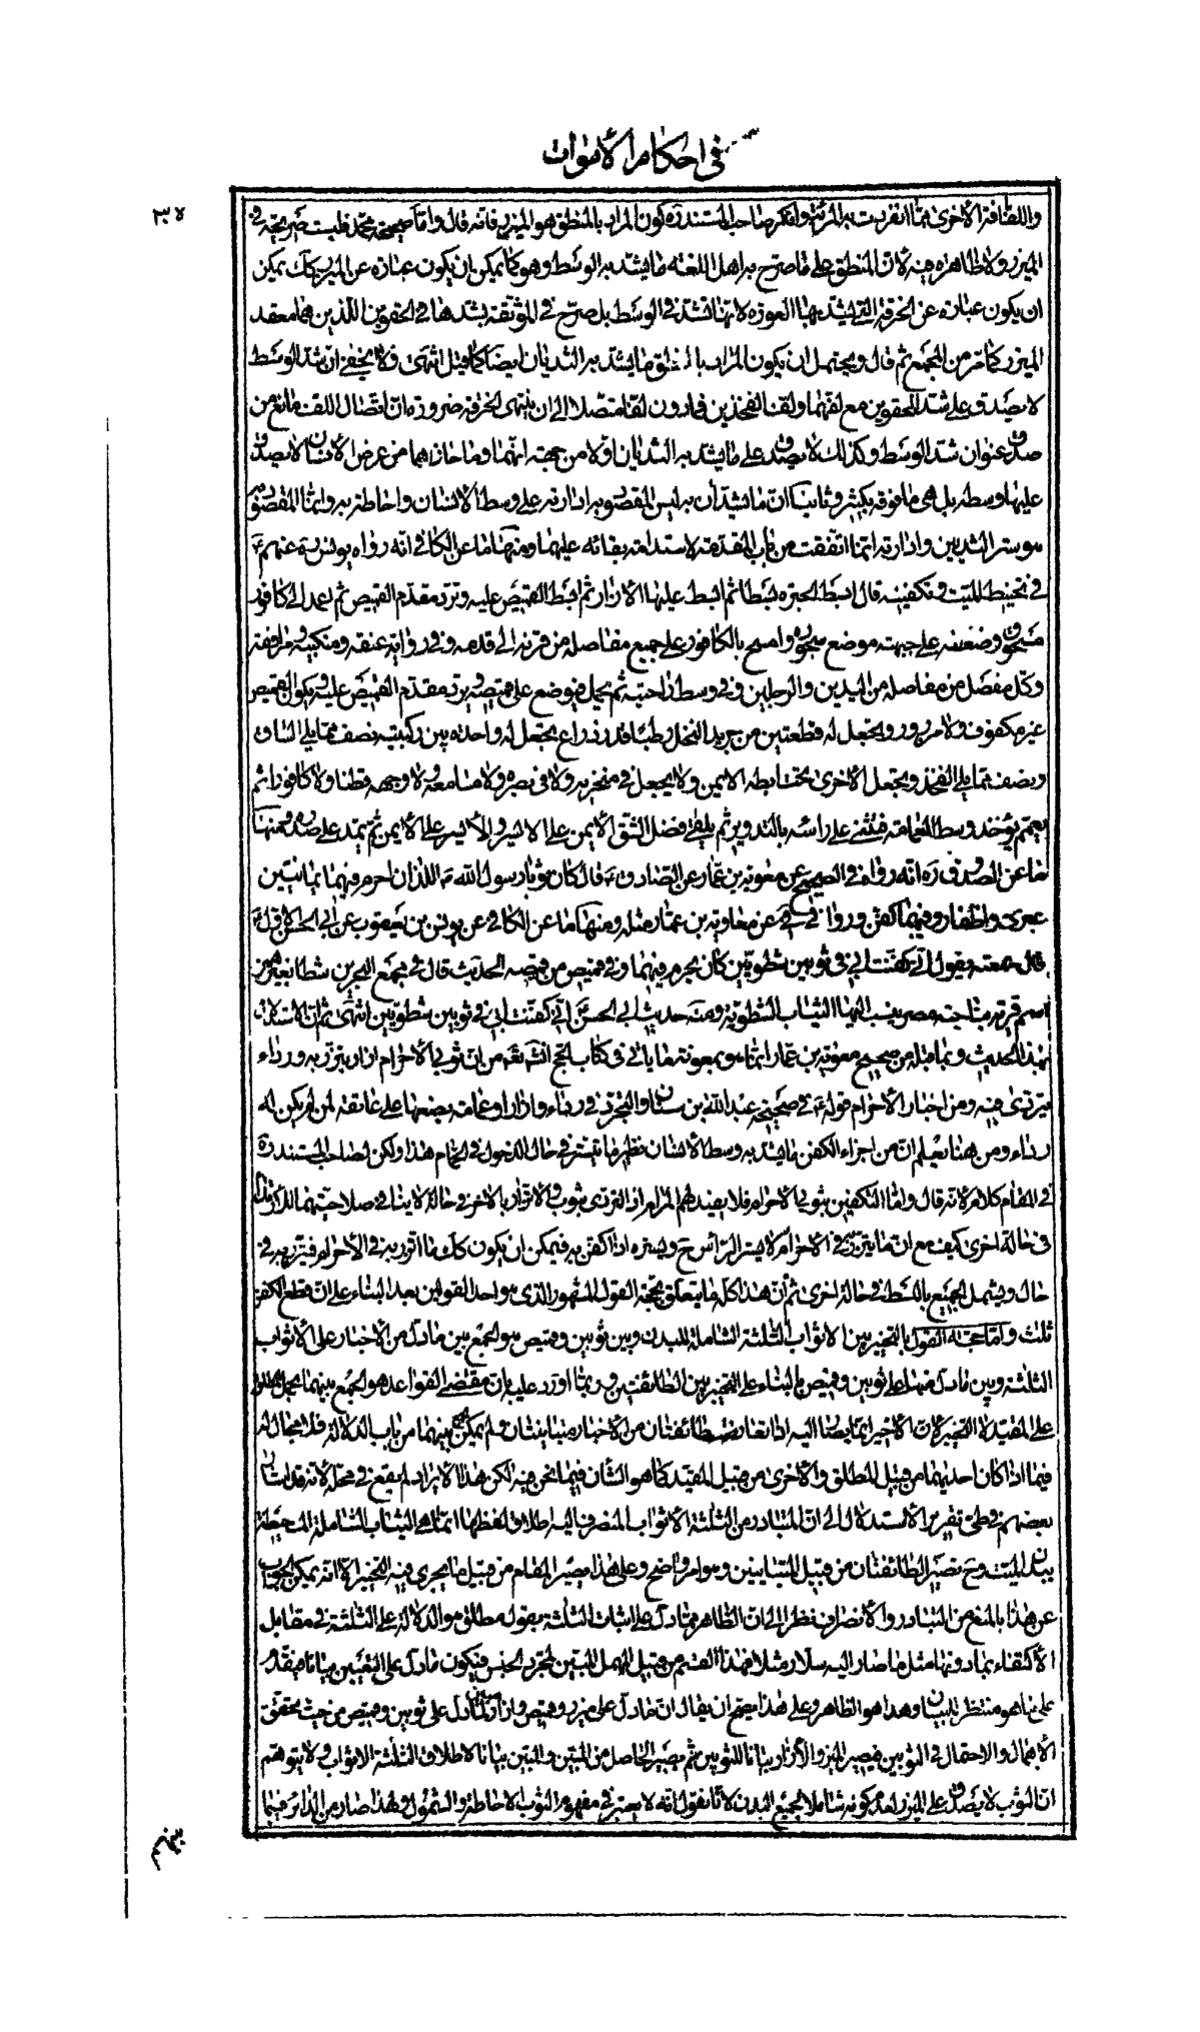 في احكام الأموات
واللفافة الأخرى مما انفردت به المرئة وانكر صاحب المستند ره كون المراد بالمنطق هو الميزر فانه قال واما صحيحة محمد فليست صريحة في
الميزر ولا ظاهرة فيه لأن المنطق على ما صرح به اهل اللغة ما يشد به الوسط وهو كما يمكن ان يكون عبارة عن الميزر كك يمكن
ان يكون عبارة عن الخرقة التي يشد بها العورة لانها تشد في الوسط بل صرح في الموثقة بشدها في الحقوين اللذين هما معقد
الميزر كما مر من المجمع ثم قال ويحتمل ان يكون المراد ما يشد به الثديان ايضا كما قيل انتهى ولا يخفى ان شد الوسط
لا يصدق على شد الحقوين مع لفهما ولف الفخذين لفا متصلا الى ان ينتهى الخرقة ضرورة ان اتصال اللف مانع من
صدق عنوان شد الوسط وكذلك لا يصدق على ما يشد به الثديان اولا من جهة انهما وما حازاهما من عرض الأنسان لا يصدق
عليها وسطه بل هي ما فوقه بكثير وثانيا ان ما يشد به ليس المقصود به ادارته على وسط الانسان واحاطته به وانما المقصود
هو ستر الثديين وادارته انما اتفقت من باب المقدمة لاستدامة بقائه عليهما ومنها ما عن الكافي انه رواه يونس عنهم ع
في تحنيط الميت وتكفينه قال ابسط الحبرة بسطا ثم ابسط عليها الأزار ثم ابسط القميص عليه وترد مقدم القميص ثم اعمد الى كافور
مسحوق وضعه على جبهته موضع سجوده وامسح بالكافور على جميع مفاصله من قرنه الى قدمه وفي رواية عنقه ومنكبيه ومرافقه
وكل مفصل من مفاصله من اليدين والرجلين وفي وسط راحتيه ثم يحمل فيوضع على قميصه ويرد مقدم القميص عليه ويكون القميص
غير مكفوف ولا مزرور ويجعل له قطعتين من جريد النخل رطبا قدر ذراع يجعل له واحدة بين ركبتيه نصف مما يلي الساق
ونصف مما يلي الفخذ ويجعل الأخرى تحت ابطه الايمن ولا يجعل في منخريه ولا في بصره ولا مسامعه ولا وجهه قطنا ولا كافورا ثم
يعمم يؤخذ وسط العمامة فيثنى على راسه بالتدوير ثم يلقى فضل الشق الأيمن على الأيسر والأيسر على الأيمن ثم يمد على صدره ومنها
ما عن الصدوق ره انه رواه في الصحيح عن معوية بن عمار عن الصادق ع قال كان ثوبا رسول الله ص اللذان احرم فيهما يمانيتين
عبرى واظفار وفيهما كفن ورواه في عن معاوية بن عمار مثله ومنها ما عن الكافي عن يونس بن يعقوب عن ابي الحسن الاول ع
قال سمعته يقول اني كفنت ابي في ثوبين شطويين كان يحرم فيهما وفي قميص من قمصه الحديث قال في مجمع البحرين شطا
اسم قرية بناحية مصر ينسب اليها الثياب الشطوية ومنه حديث ابي الحسن اني كفنت ابي في ثوبين شطويين انتهى ثم ان الاستدلال
بهذا الحديث وبما قبله من صحيح معوية بن عمار انما هو بمعونة ما يأتي في كتاب الحج انش تعم من ان ثوبى الأحرام ازار يتزر به ورداء
يرتدى به ومن اخبار الأحرام قوله ع في صحيحة عبد الله بن سنان والتجرد في رداء وازار او عمامة يضعها على عاتقه لمن لم يكن له
رداء ومن هنا يعلم ان من اجزاء الكفن ما يشد به وسط الأنسان نظير ما يتستر في حال الدخول في الحمام هذا ولكن لصاحب المستند ره
في المقام كلام لانه قال واما التكفين بثوبى الأحرام فلا يفيدهم المرام اذ التردى بثوب والاتزار بالاخر في حالة لا ينافي صلاحيتهما
في حالة اخرى كيف مع ان ما يتردى في الأحرام لا يستر الرأس ح ويستره اذا كفن به فيمكن ان يكون كك ما اتزر به في الأحرام فيتزر به في
حال ويشمل الجميع بالبسط في حالة اخرى ثم ان هذا كله ما يتعلق بحجة القول المشهور الذي هو احد القولين بعد البناء على ان قطع الكفن
ثلث واما حجة القول بالتخيير بين الاثواب الثلثة الشاملة للبدن وبين ثوبين وقميص هو الجمع بين ما دل من الأخبار على الأثواب
الثلاثة وبين ما دل منها على ثوبين وقميص بالبناء على التخيير بين الطائفتين وربما اورد عليه بان مقتضى القواعد هو الجمع بينهما بحمل المطلق
على المقيد لا التخيير لأن الأخير انما يصار اليه اذا تعارضت طائفتان من الأخبار متباينتان ولم يمكن الجمع بينهما من باب الدلالة فلا مجال له
فيما اذا كان احديهما من قبيل المطلق والأخرى من قبيل المقيد كما هو الشأن فيما نحن فيه لكن هذا الأيراد لم يقع في محله لأنه قد اشار
بعضهم في طى تقرير الأستدلال الى ان المتبادر من الثلثة الأثواب المنصرف اليه اطلاق لفظها انما هي الثياب الشاملة المحيطة
ببدن الميت وح تصير الطائفتان من قبيل المتباينين وهو امر واضح وعلى هذا يصير المقام من قبيل ما يجرى فيه التخيير الا انه يمكن الجواب
عن هذا بالمنع من التبادر والأنصراف نظرا الى ان الظاهر مما دل على اثبات الثلثة بقول مطلق هو الدلالة على الثلثة في مقابل
الأكتفاء بما دونها مثل ما صار اليه سلار مثلا فهذا القسم من قبيل المهمل المبين لمجرد الجنس فيكون ما دل على التعيين بيانا مقدما
على ما هو منتظر البيان وهذا هو الظاهر وعلى هذا يصح ان يقال ان ما دل على ميزر وقميص وازار مبين لما دل على ثوبين وقميص من حيث تحقق
الأجمال والاحتمال في الثوبين فيصير الميزر والأزار بيانا للثوبين ثم يصير الحاصل من المبين والمبين بيانا لاطلاق الثلثة الاثواب ولا يتوهم
ان الثوب لا يصدق على الميزر لعدم كونه شاملا لجميع البدن لأنا نقول انه لا يعتبر في مفهوم الثوب الاحاطة والشمول وهذا صار من الدائر فيما
بينهم